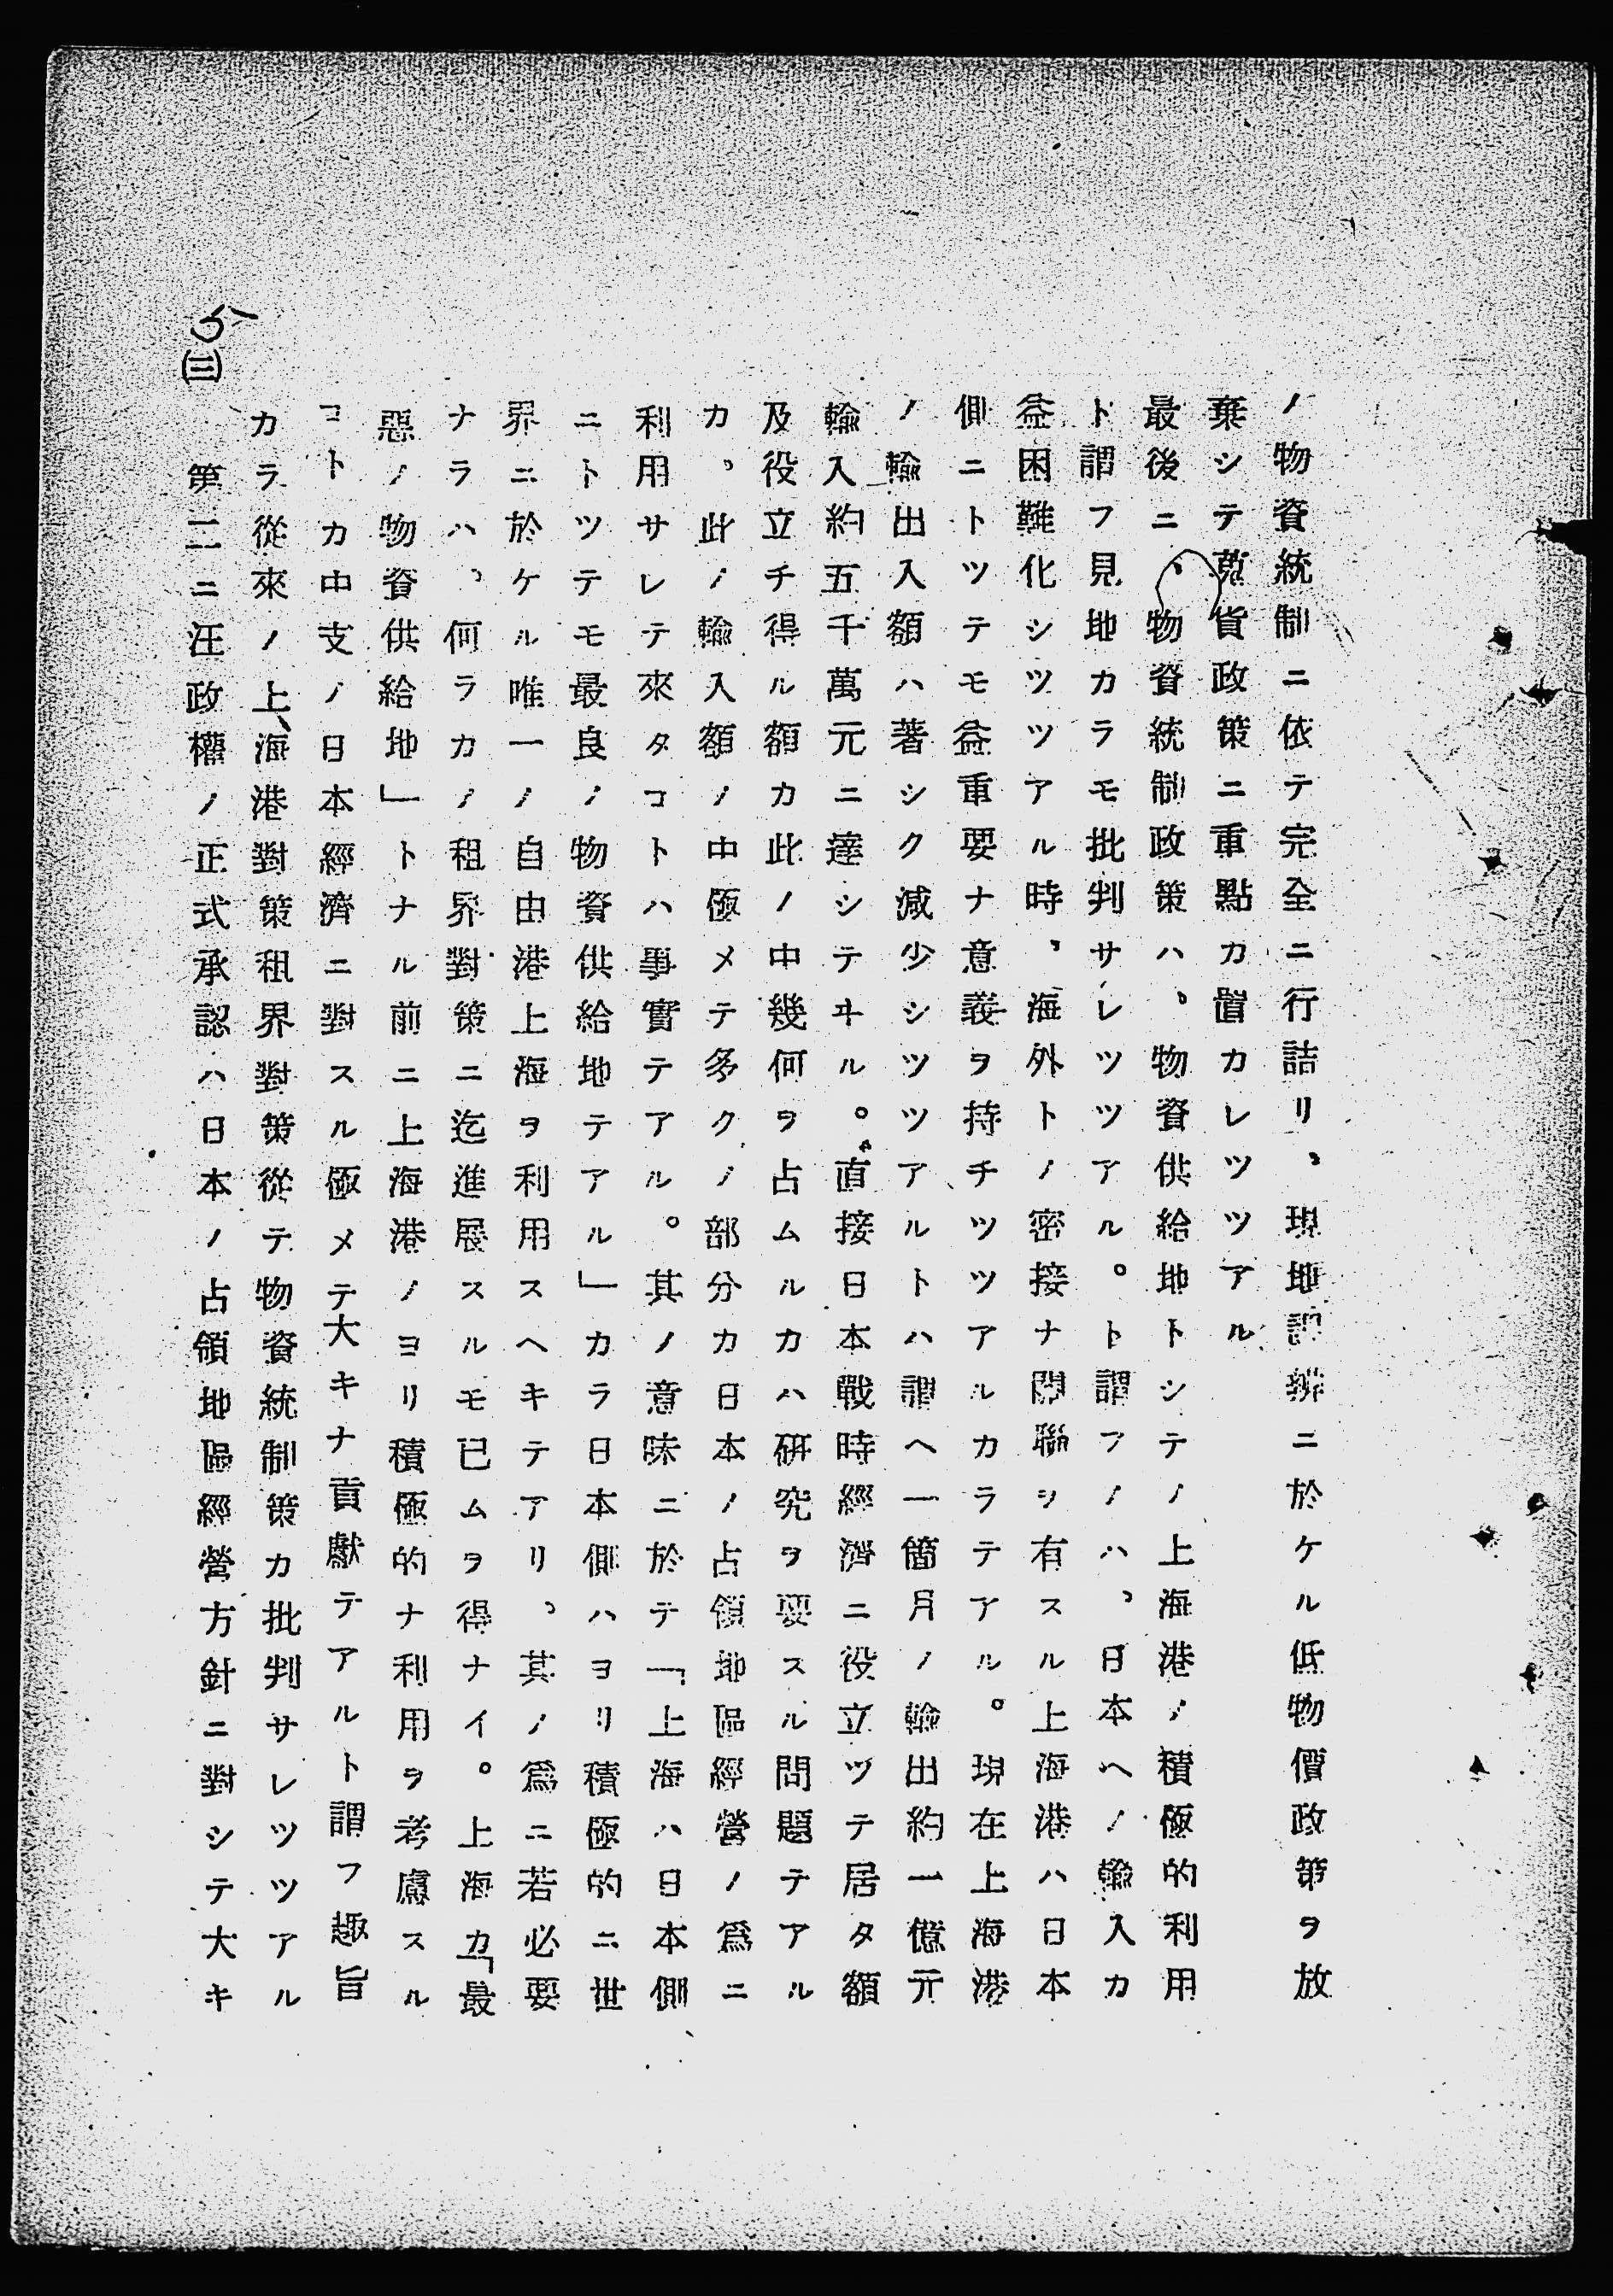 ノ物資統制ニ依テ完全ニ行詰リ、現地調辨ニ於ケル低物價政策ヲ放
棄シテ蒐貨政策ニ重點カ置カレツツアル
最後ニ、物資統制政策ハ、物資供給地トシテノ上海港ノ積極的利用
ト謂フ見地カラモ批判サレツツアル。ト謂フノハ、日本ヘノ輸入カ
益困難化シツツアル時、海外トノ密接ナ關聯ヲ有スル上海港ハ日本
側ニトツテモ益重要ナ意義ヲ持チツツアルカラテアル。現在上海港
ノ輸出入額ハ著シク減少シツツアルトハ謂ヘ一箇月ノ輸出約一億元
輸入約五千萬元ニ達シテヰル。直接日本戰時經濟ニ役立ツテ居タ額
及役立チ得ル額カ此ノ中幾何ヲ占ムルカハ研究ヲ要スル問題テアル
カ、此ノ輸入額ノ中極メテ多クノ部分カ日本ノ占領地區經營ノ爲ニ
利用サレテ來タコトハ事實テアル。其ノ意味ニ於テ「上海ハ日本側
ニトツテモ最良ノ物資供給地テアル」カラ日本側ハヨリ積極的ニ世
界ニ於ケル唯一ノ自由港上海ヲ利用スヘキテアリ、其ノ爲ニ若必要
ナラハ、何ラカノ租界對策ニ迄進展スルモ已ムヲ得ナイ。上海カ「最
惡ノ物資供給地」トナル前ニ上海港ノヨリ積極的ナ利用ヲ考慮スル
コトカ中支ノ日本經濟ニ對スル極メテ大キナ貢獻テアルト謂フ趣旨
カラ從來ノ上、海港對策租界對策從テ物資統制策カ批判サレツツアル
㈢ 第二ニ汪政權ノ正式承認ハ日本ノ占領地區經營方針ニ對シテ大キ